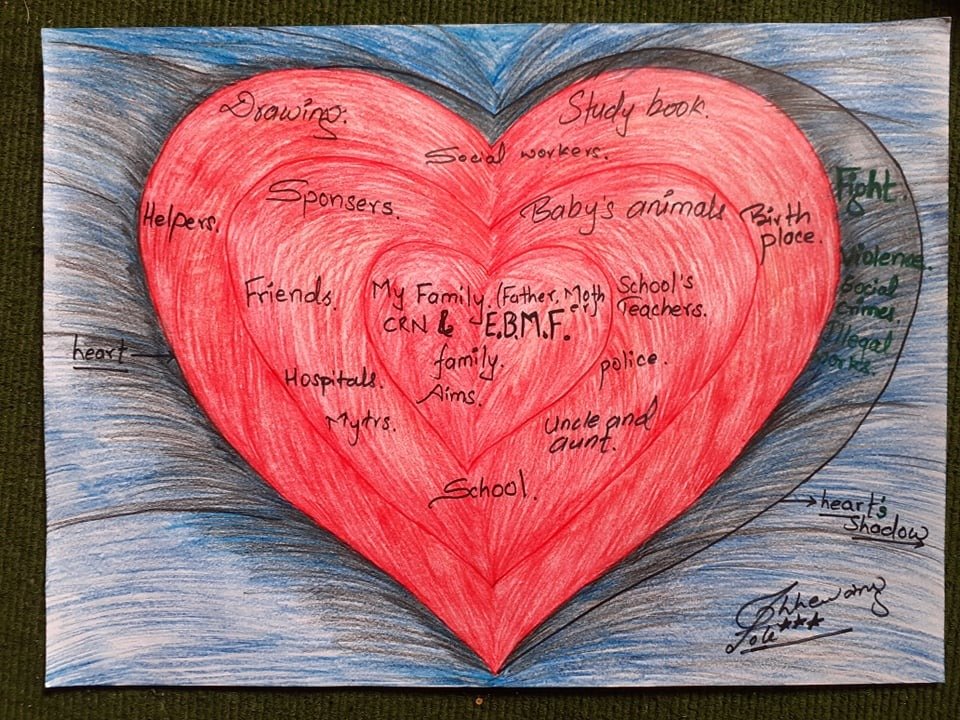 Drawing.
Study book.
Social workers.
Sponsers.
Baby's animals
Helpers.
Birth
place.
Friends.
My Family (Father, Moth
er)
CRN & E.B.M.F.
family.
Aims.
School's
Teachers.
police.
Hospitals.
Mytrs.
Uncle and
aunt.
School.
heart
Fight.
Violence.
Social
crimes.
Illegal
works.
heart's
Shadow